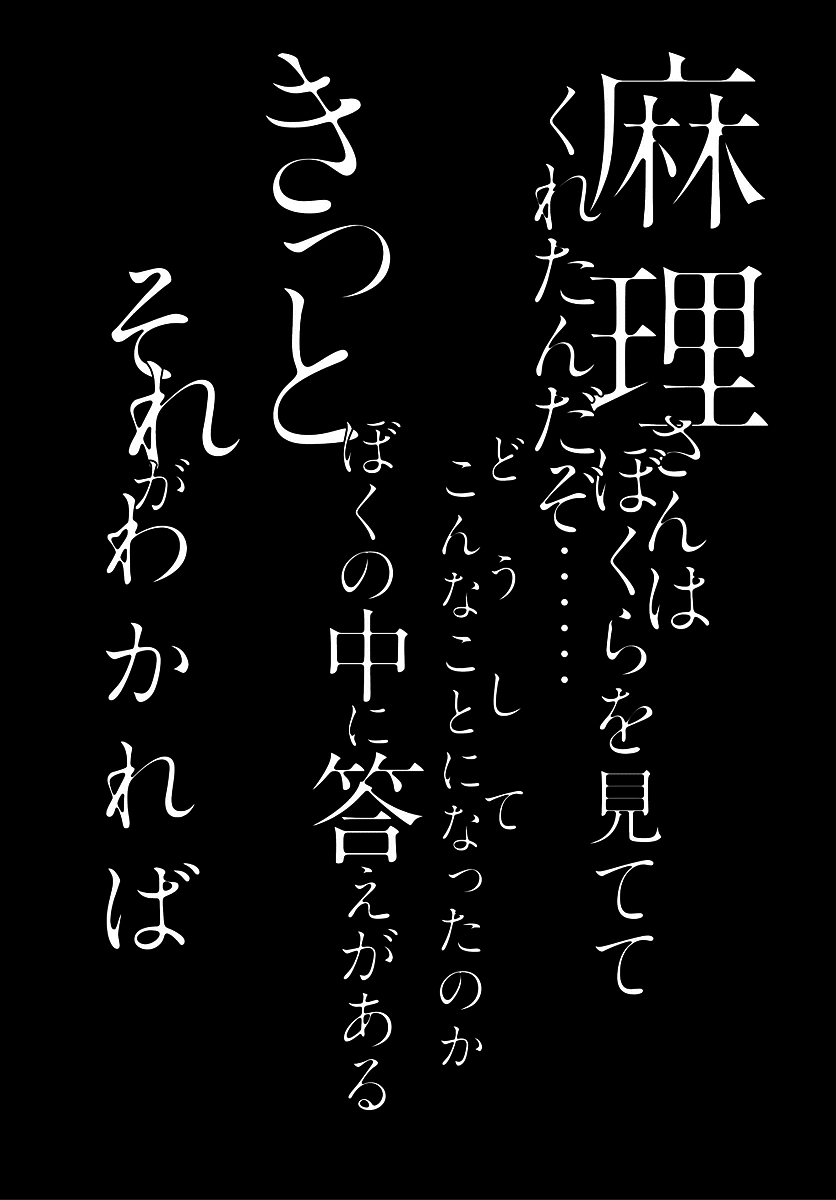 麻理さんは
ぼくらを見てて
くれたんだぞ……
どうして
こんなことになったのか
きっと
ぼくの中に答えがある
それがわかれば